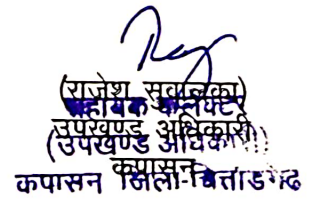 (राजेश सुवालका)
सहायक कलेक्टर
उपखण्ड अधिकारी
(उपखण्ड अधिकारी)
कपासन
कपासन जिला-चित्तौडगढ